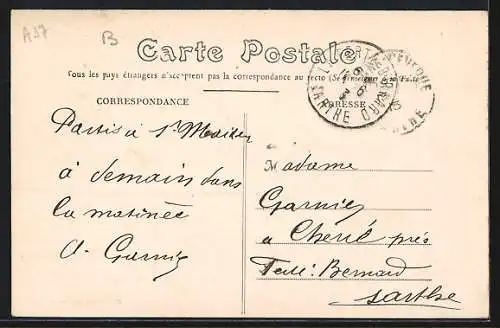 A37
B
Carte Postale
Tous les pays étrangers n'acceptent pas la correspondance au recto (Se renseigner à la Poste)
CORRESPONDANCE
ADRESSE
Partis à St
à demain dans
la matinée
A. Garnier
Madame
Garnier
à Cherré près
Ferté: Bernard
Sarthe
LA FERTÉ-BERNARD
SARTHE